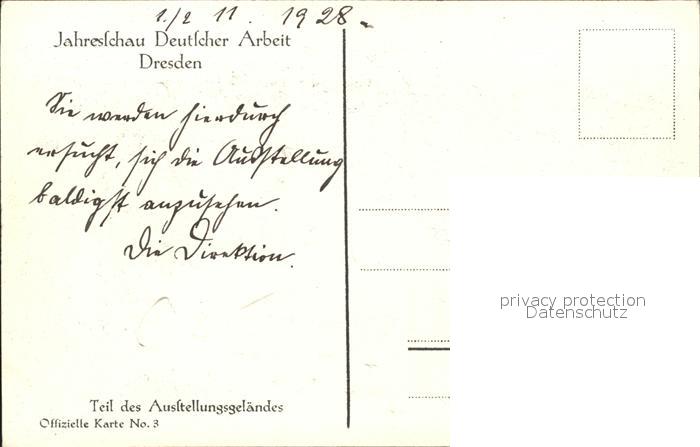 1./2 11. 1928.
Jahresſchau Deutſcher Arbeit
Dresden
Sie werden hierdurch
ersucht, sich die Ausstellung
baldigst anzusehen.
Die Direktion.
privacy protection
Datenschutz
Teil des Ausſtellungsgeländes
Offizielle Karte No. 3